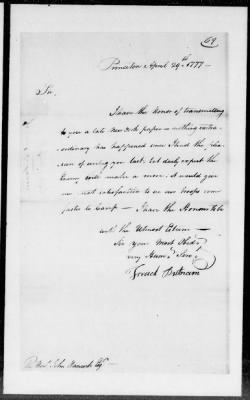 69
Princeton April 29th 1777 —
Sir,
I have the Honor of transmitting
to you a late New York paper — nothing extra-
ordinary has happened since I had the plea-
sure of seeing you last, but daily expect the
Enemy will make a move. It would give
me great satisfaction to see our troops come
faster to Camp — I have the Honour to be
with the Utmost Esteem —
Sir your Most Obedt
very Humb Servt
Israel Putnam
Honl John Hancock Esqr